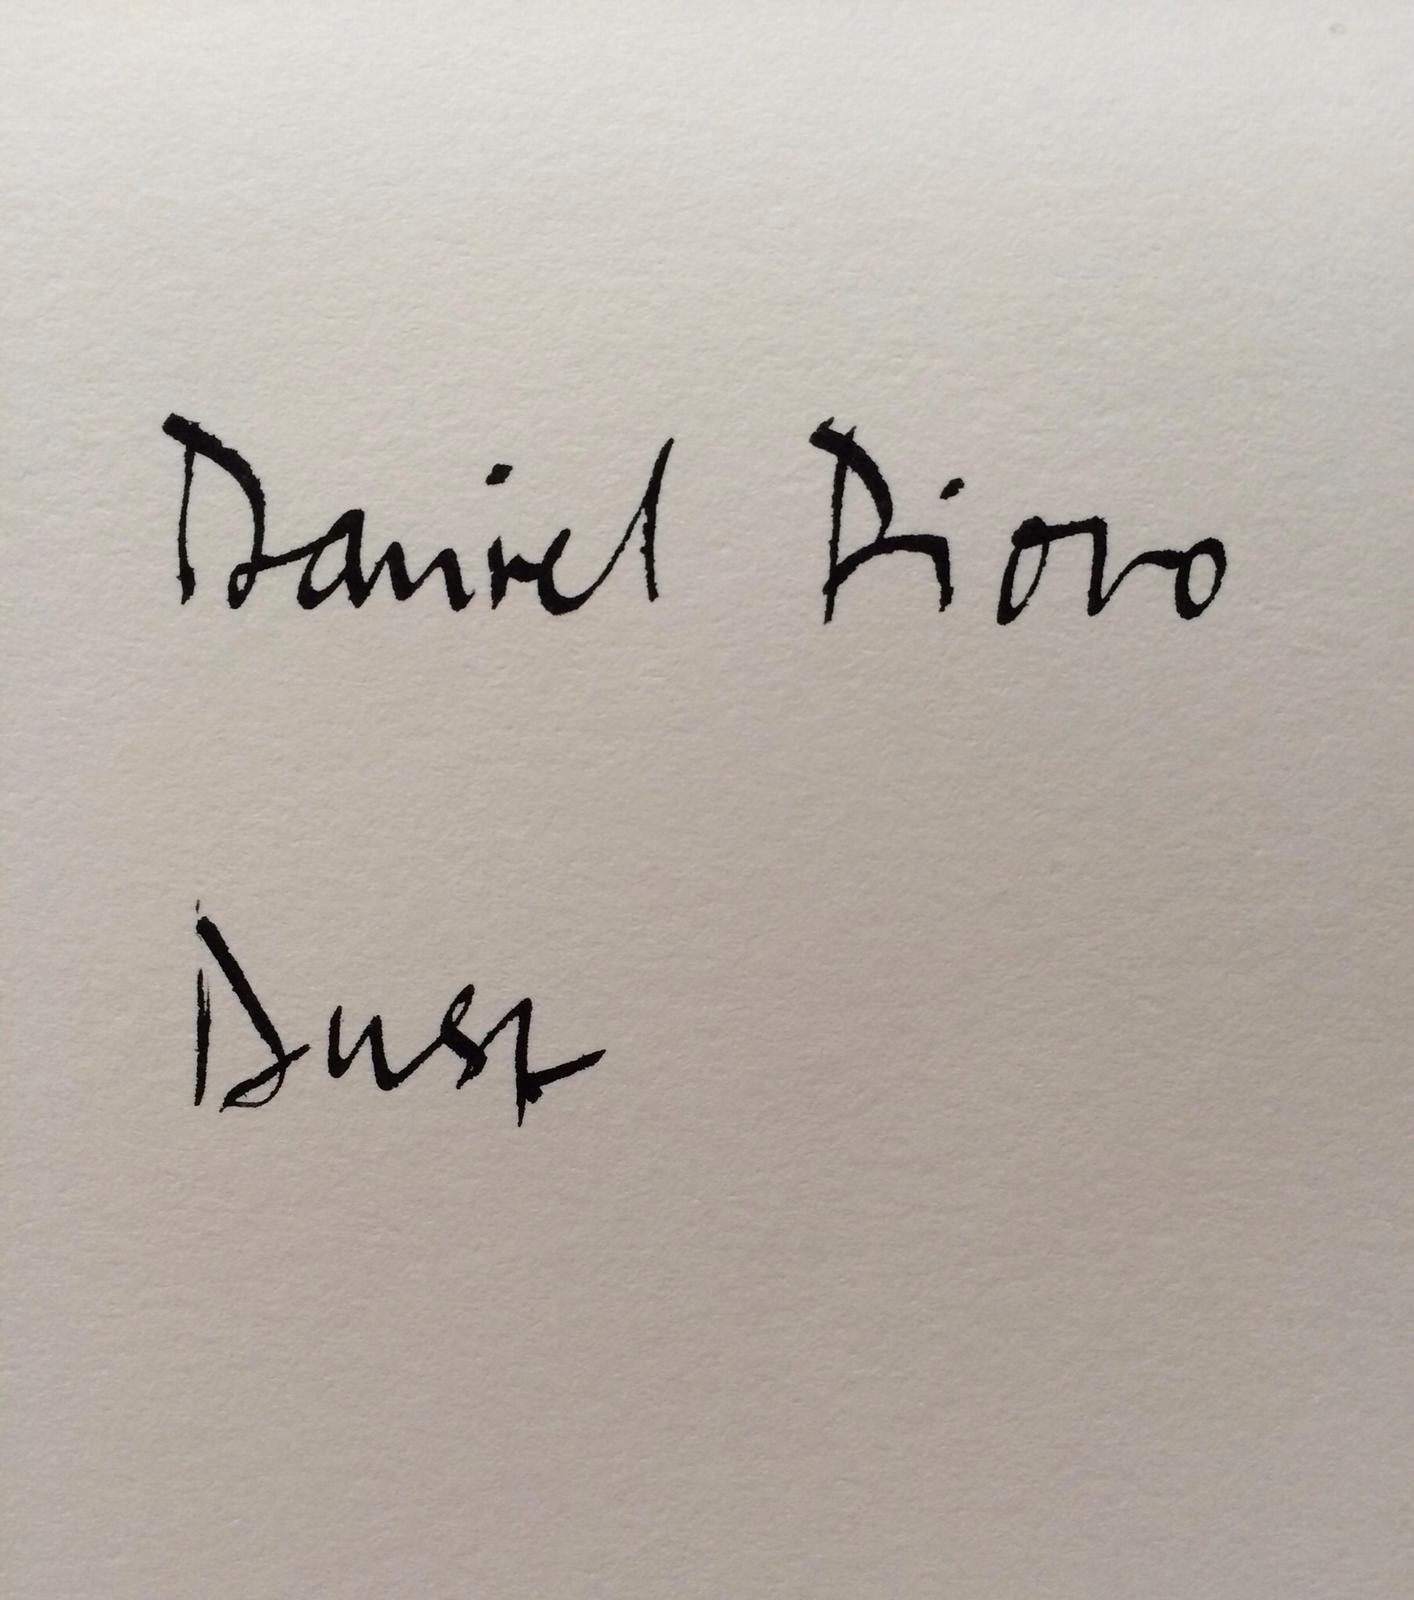 Daniel Pioro
Dust